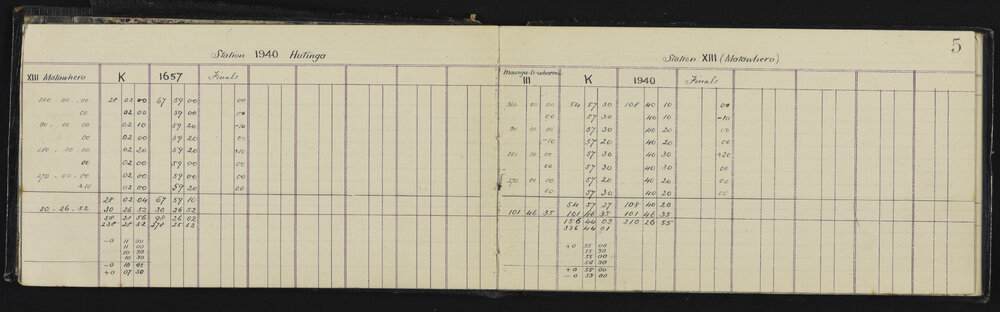 5
Station 1940 Hutinga
XIII Matawhero K 1657 Finals
360 00 00 28 02 00 67 59 00 00
00 02 00 59 00 00
90 00 00 02 10 59 20 -10
00 02 00 59 20 00
180 00 00 02 20 59 20 +10
00 02 00 59 00 00
270 00 00 02 00 59 00 00
+10 02 00 59 20 00
28 02 04 67 59 10
30 . 26 . 52 30 26 52 30 26 52
58 28 56 98 26 02
238 28 52 278 25 52
-0 11 00
11 00
10 30
10 30
-0 10 45
+0 07 30
Station XIII (Matawhero)
III K 1940 Finals
360 00 00 54 57 30 108 40 10 00
00 57 30 40 10 -10
90 00 00 57 30 40 20 00
-10 57 20 40 20 00
180 00 00 57 30 40 30 +20
00 57 30 40 30 00
270 00 00 57 20 40 20 00
00 57 30 40 20 00
54 57 27 108 40 20
101 46 35 101 46 35 101 46 35
156 44 02 210 26 55
336 44 01
+0 55 00
55 30
55 00
54 30
+0 55 00
-0 53 00